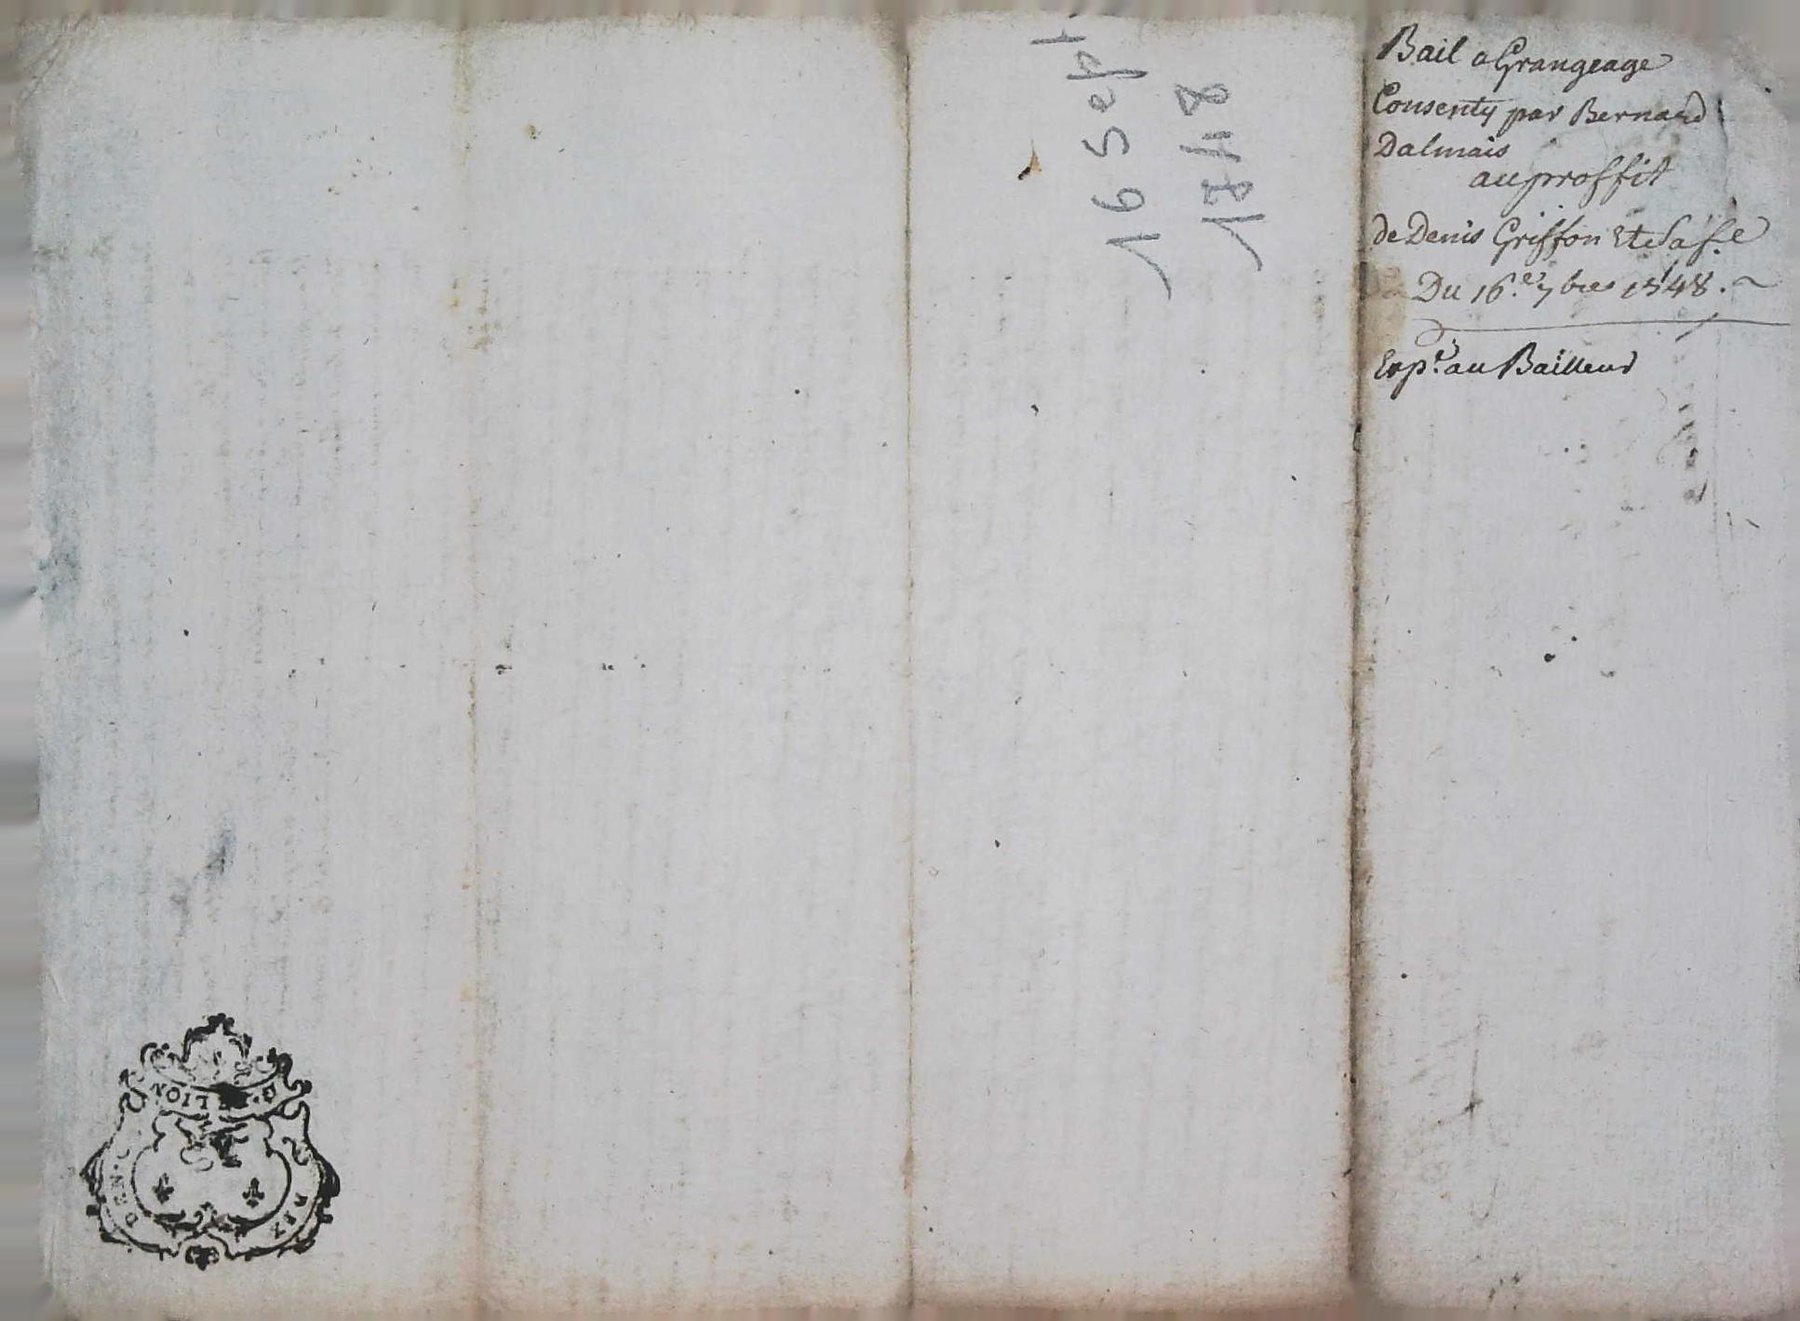 Bail a Grangeage
Consenty par Bernard
Dalmais
au proffit
de Denis Griffon Et Sa fe
Du 16.e 7bres 1748.
Exp.é au Bailleur
16 Sept
1748
G. DE LION
DEN.
SIX